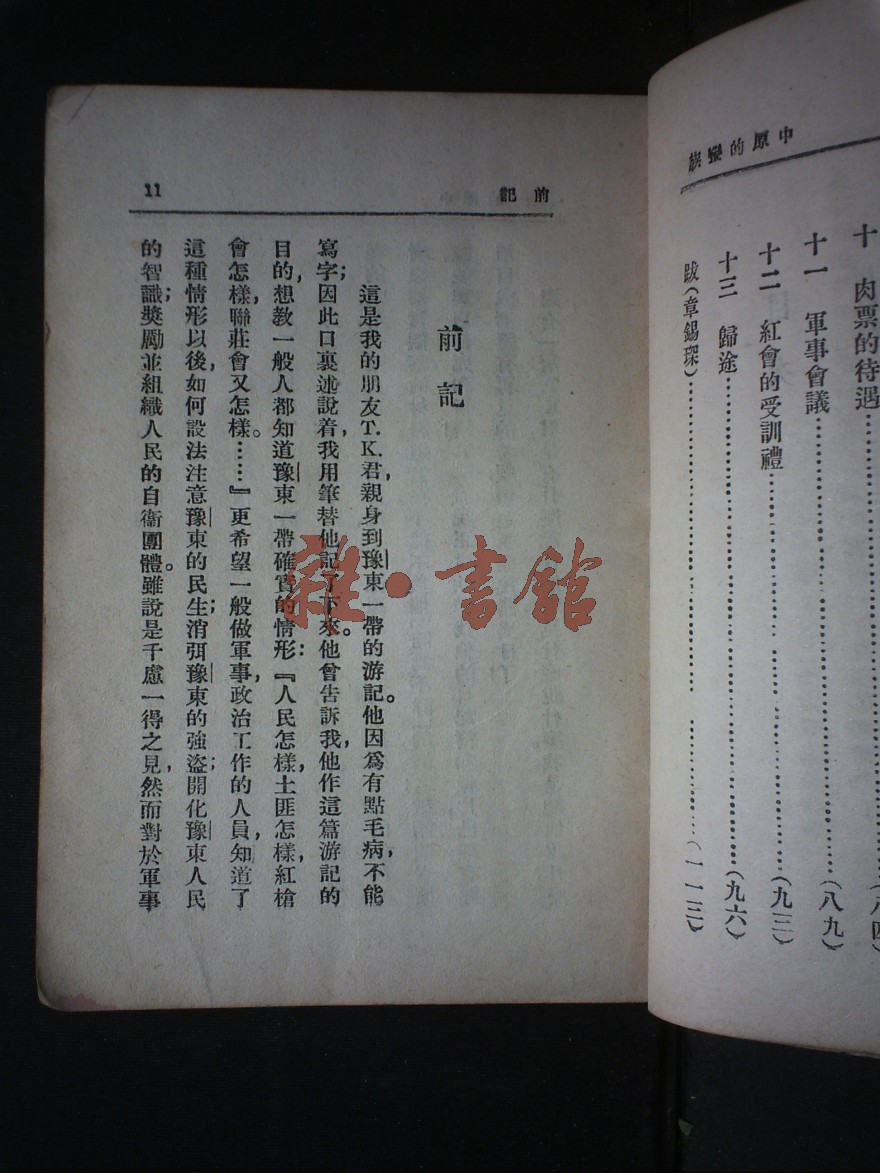 中原的蠻族
十 肉票的待遇……(八四)
十一 軍事會議……(八九)
十二 紅會的受訓禮……(九三)
十三 歸途……(九六)
跋(章錫琛)……(一一三)
前記
11
前記
這是我的朋友T.K.君,親身到豫東一帶的游記。他因爲有點毛病,不能
寫字;因此口裏述說着,我用筆替他記了下來。他曾告訴我,他作這篇游記的
目的,想教一般人都知道豫東一帶確實的情形:『人民怎樣,土匪怎樣,紅槍
會怎樣,聯莊會又怎樣。……』更希望一般做軍事,政治工作的人員,知道了
這種情形以後,如何設法注意豫東的民生;消弭豫東的強盜;開化豫東人民
的智識;獎勵並組織人民的自衛團體。雖說是千慮一得之見,然而對於軍事
雜·書館